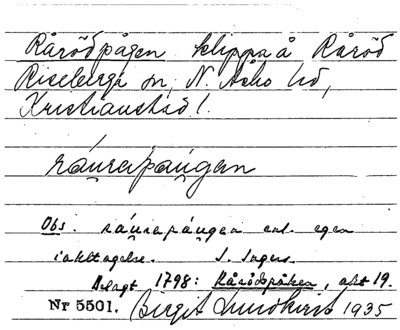 Rårödpågen klippa å Råröd
Riseberga sn, N. Åsbo hd,
Kristianstad l.
ráurapáugan
Obs. ráurapáugen enl. egen
iakttagelse. S. Ingers.
Belagt 1798: Rårödspåken, akt 19.
Nr 5501. Birgit Lundkvist 1935